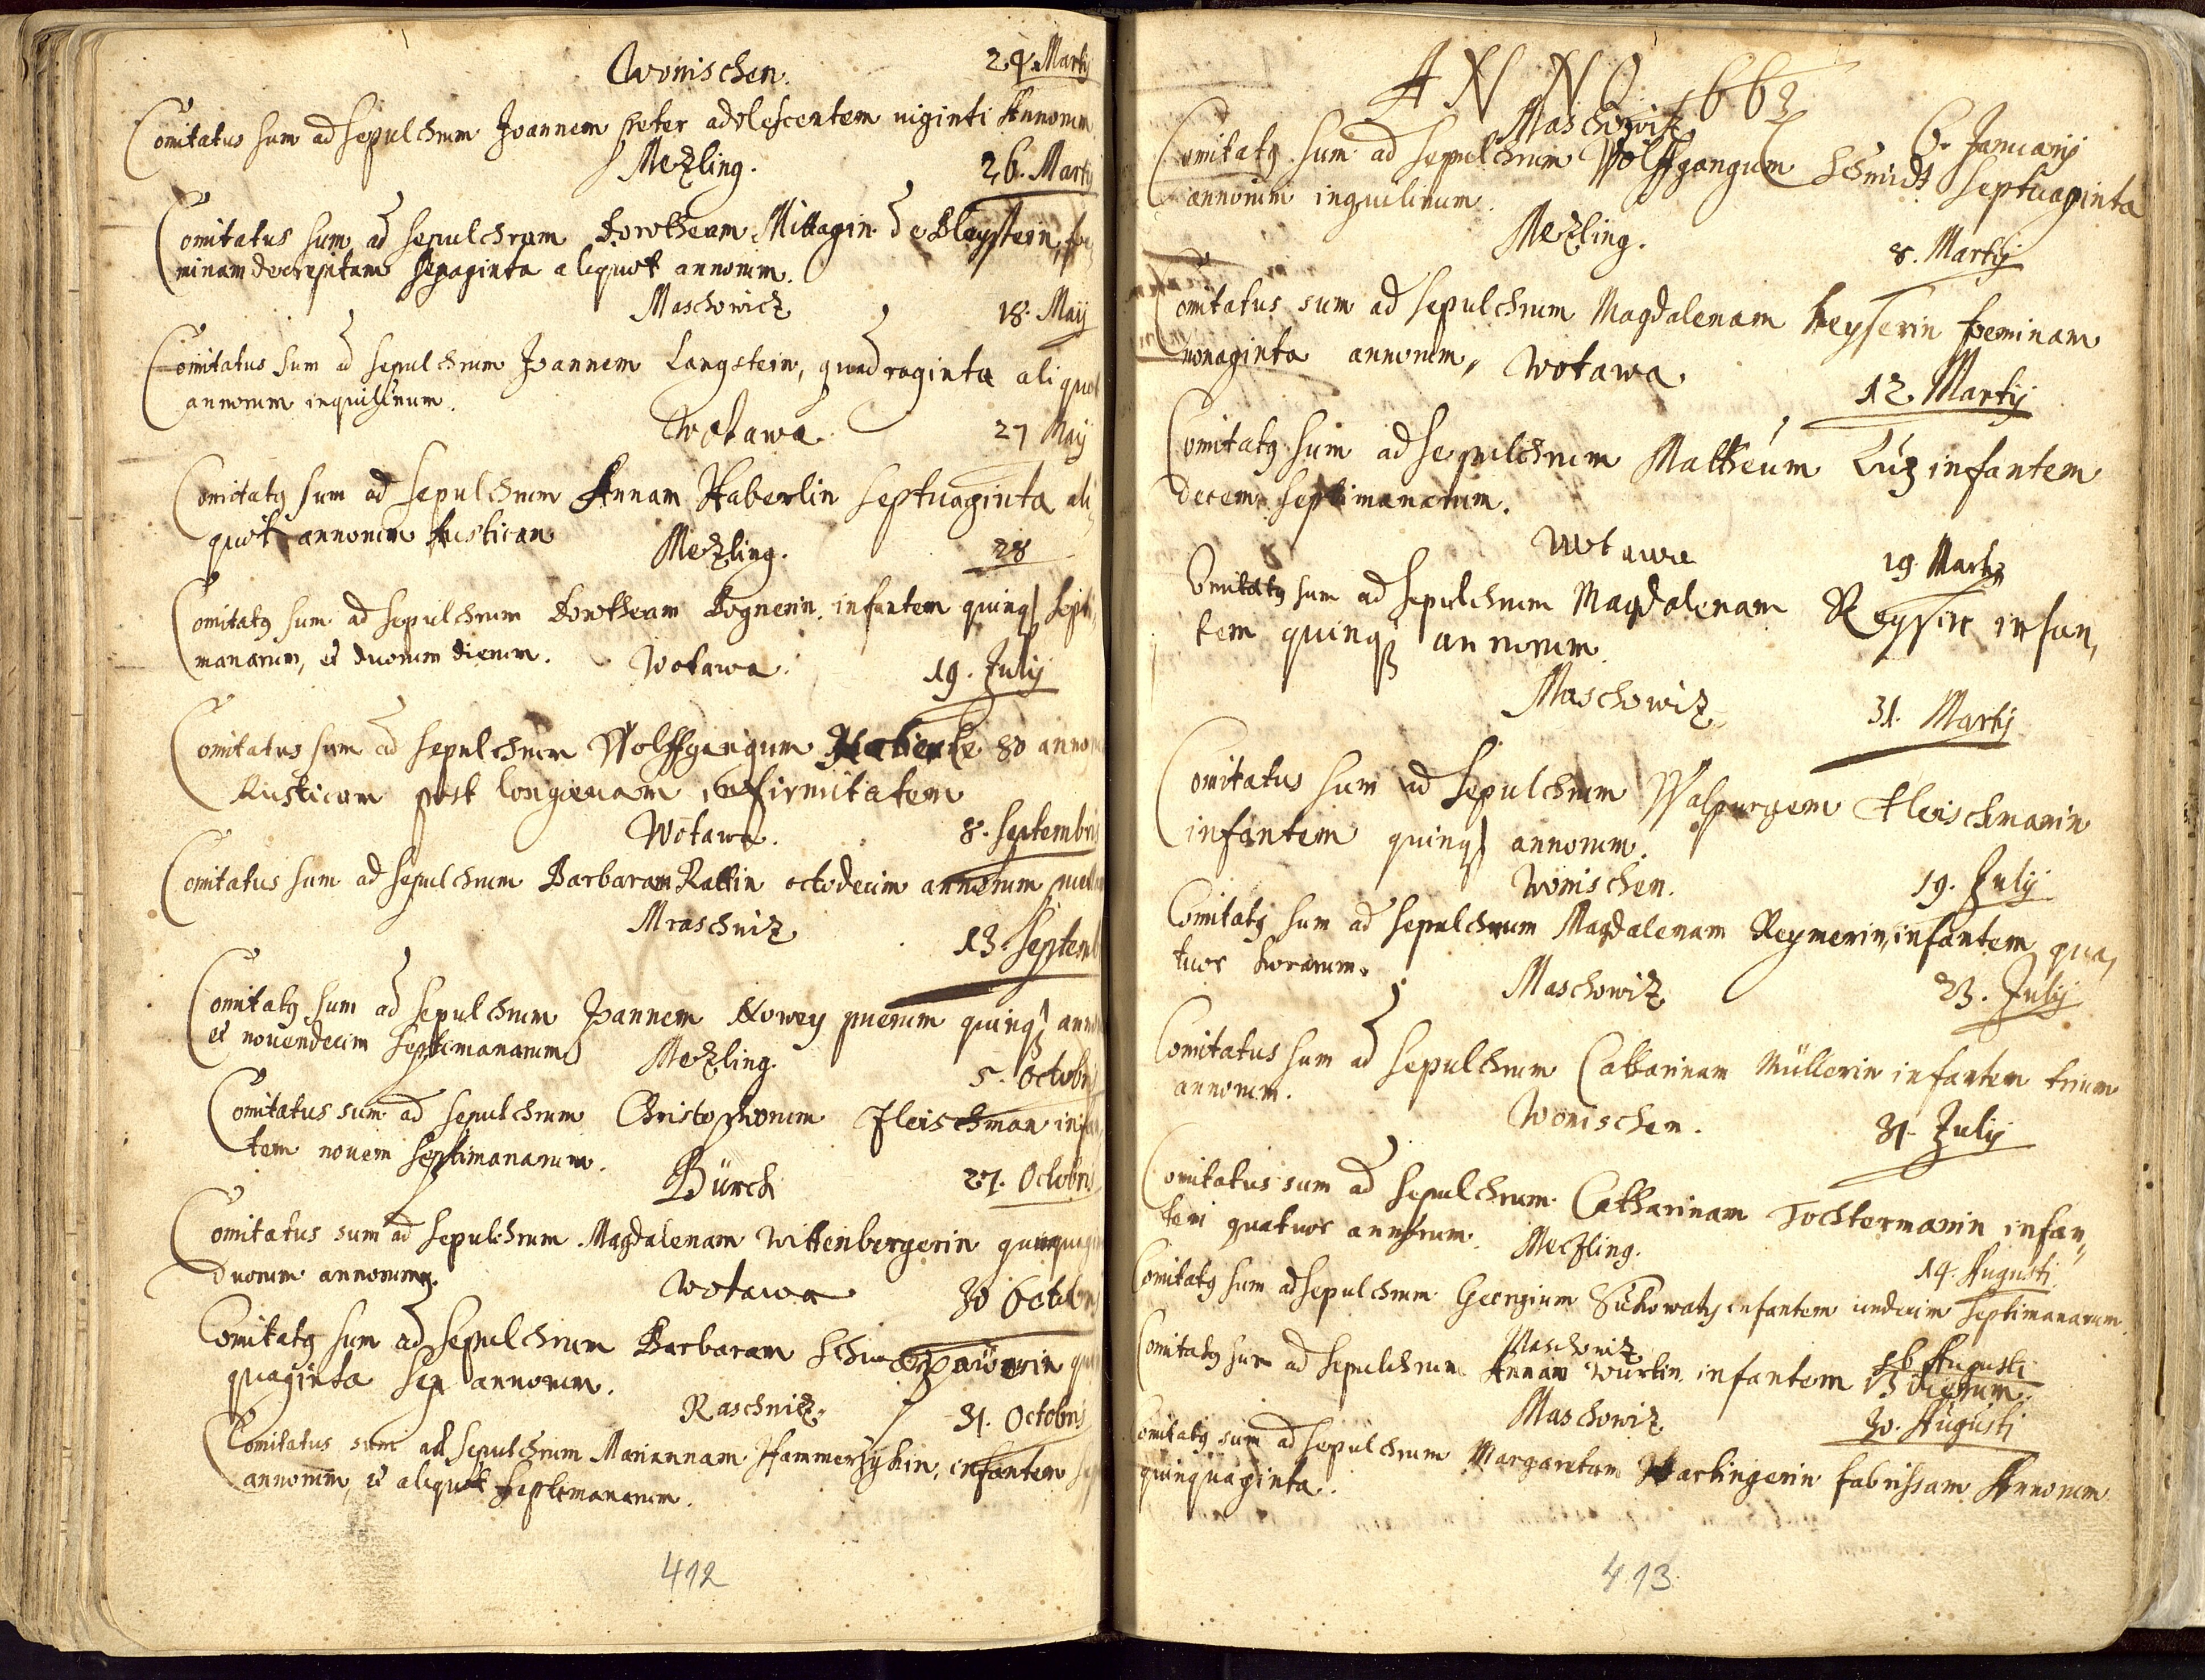 Wonischen. 24. Martij
Comitatus sum ad sepulchrum Joannem Peter adolescentem viginti Annorum
Mezling. 26. Martij
Comitatus sum ad sepulchrum Dorotheam Mittagin de Bleystein, foe
minam decrepitam sexaginta aliquot annorum.
Maschowicz 18. Maij
Comitatus sum ad sepulchrum Joannem Langstein, quadraginta aliquot
annorum inquilinum.
Wotawa 27 Maij
Comitatq sum ad sepulchrum Annam Haberlin septuaginta ali,
quot annorum Rusticam
Mezling. 28
Comitatq sum ad sepulchrum Dorotheam Bognerin. infantem quinq septi,
manarum, et duorum dierum.
Wotawa. 19. Julij
Comitatus sum ad sepulchrum Wolffgangum 80 anno
Rusticum post longaeuam infirmitatem
Wotawa. 8. Septembris
Comitatus sum ad sepulchrum Barbaram Rattin octodecim annorum puellam
Mraschniz 13. Septemb
Comitatq sum ad sepulchrum Joannem Nowey puerum quinq anno
et nouendecim septimanarum
Mezling. 5. Octobris
Comitatus sum ad sepulchrum Christophorum Fleischman infan,
tem nouem septimanarum.
Bürch 27. Octobris
Comitatus sum ad sepulchrum Magdalenam Wittenbergerin quinquagi
duorum annorum.
Wotawa 30 Octobris
Comitatq sum ad sepulchrum Barbaram
quaginta sex annorum.
Raschniz. 31. Octobris
Comitatus sum ad sepulchrum Mariannam infantem
annorum, et aliquot septimanarum.
412
ANNO 1663
Maschowiz 6. Januarij
Comitatq sum ad sepulchrum Wolffgangum Schmidt septuaginta
annorum inquilinum.
Mezling. 8. Martij
Comitatus sum ad sepulchrum Magdalenam Keyserin foeminam
nonaginta annorum,
Wotawa 12. Martij
Comitatq sum ad sepulchrum Mattheum Luz infantem
decem septimanarum.
Wotawa 19 Martij
Comitatq sum ad sepulchrum Magdalenam infan,
tem quinq annorum
Maschowiz 31. Martij
Comitatus sum ad sepulchrum Walpurgem Fleischmanin
infantem quinq annorum.
Wonischen. 19. Julij
Comitatq sum ad sepulchrum Magdalenam Reymerin, infantem qua,
tuor horarum.
Maschowiz 23. Julij
Comitatus sum ad sepulchrum Catharinam Müllerin infantem trium
annorum.
Wonischen. 31. Julij
Comitatus sum ad sepulchrum Catharinam Tochtermanin infan,
tem quatuor annorum.
Mezling. 14. Augusti
Comitatq sum ad sepulchrum Georgium Sukowaty infantem undecim septimanarum.
Maschowiz 16 Augusti
Comitatq sum ad sepulchrum Annam Würtin infantem 13 dierum.
Maschowiz 30. Augusti
Comitatq sum ad sepulchrum Margaretam Hartingerin fabrissam Annorum
quinquaginta.
413